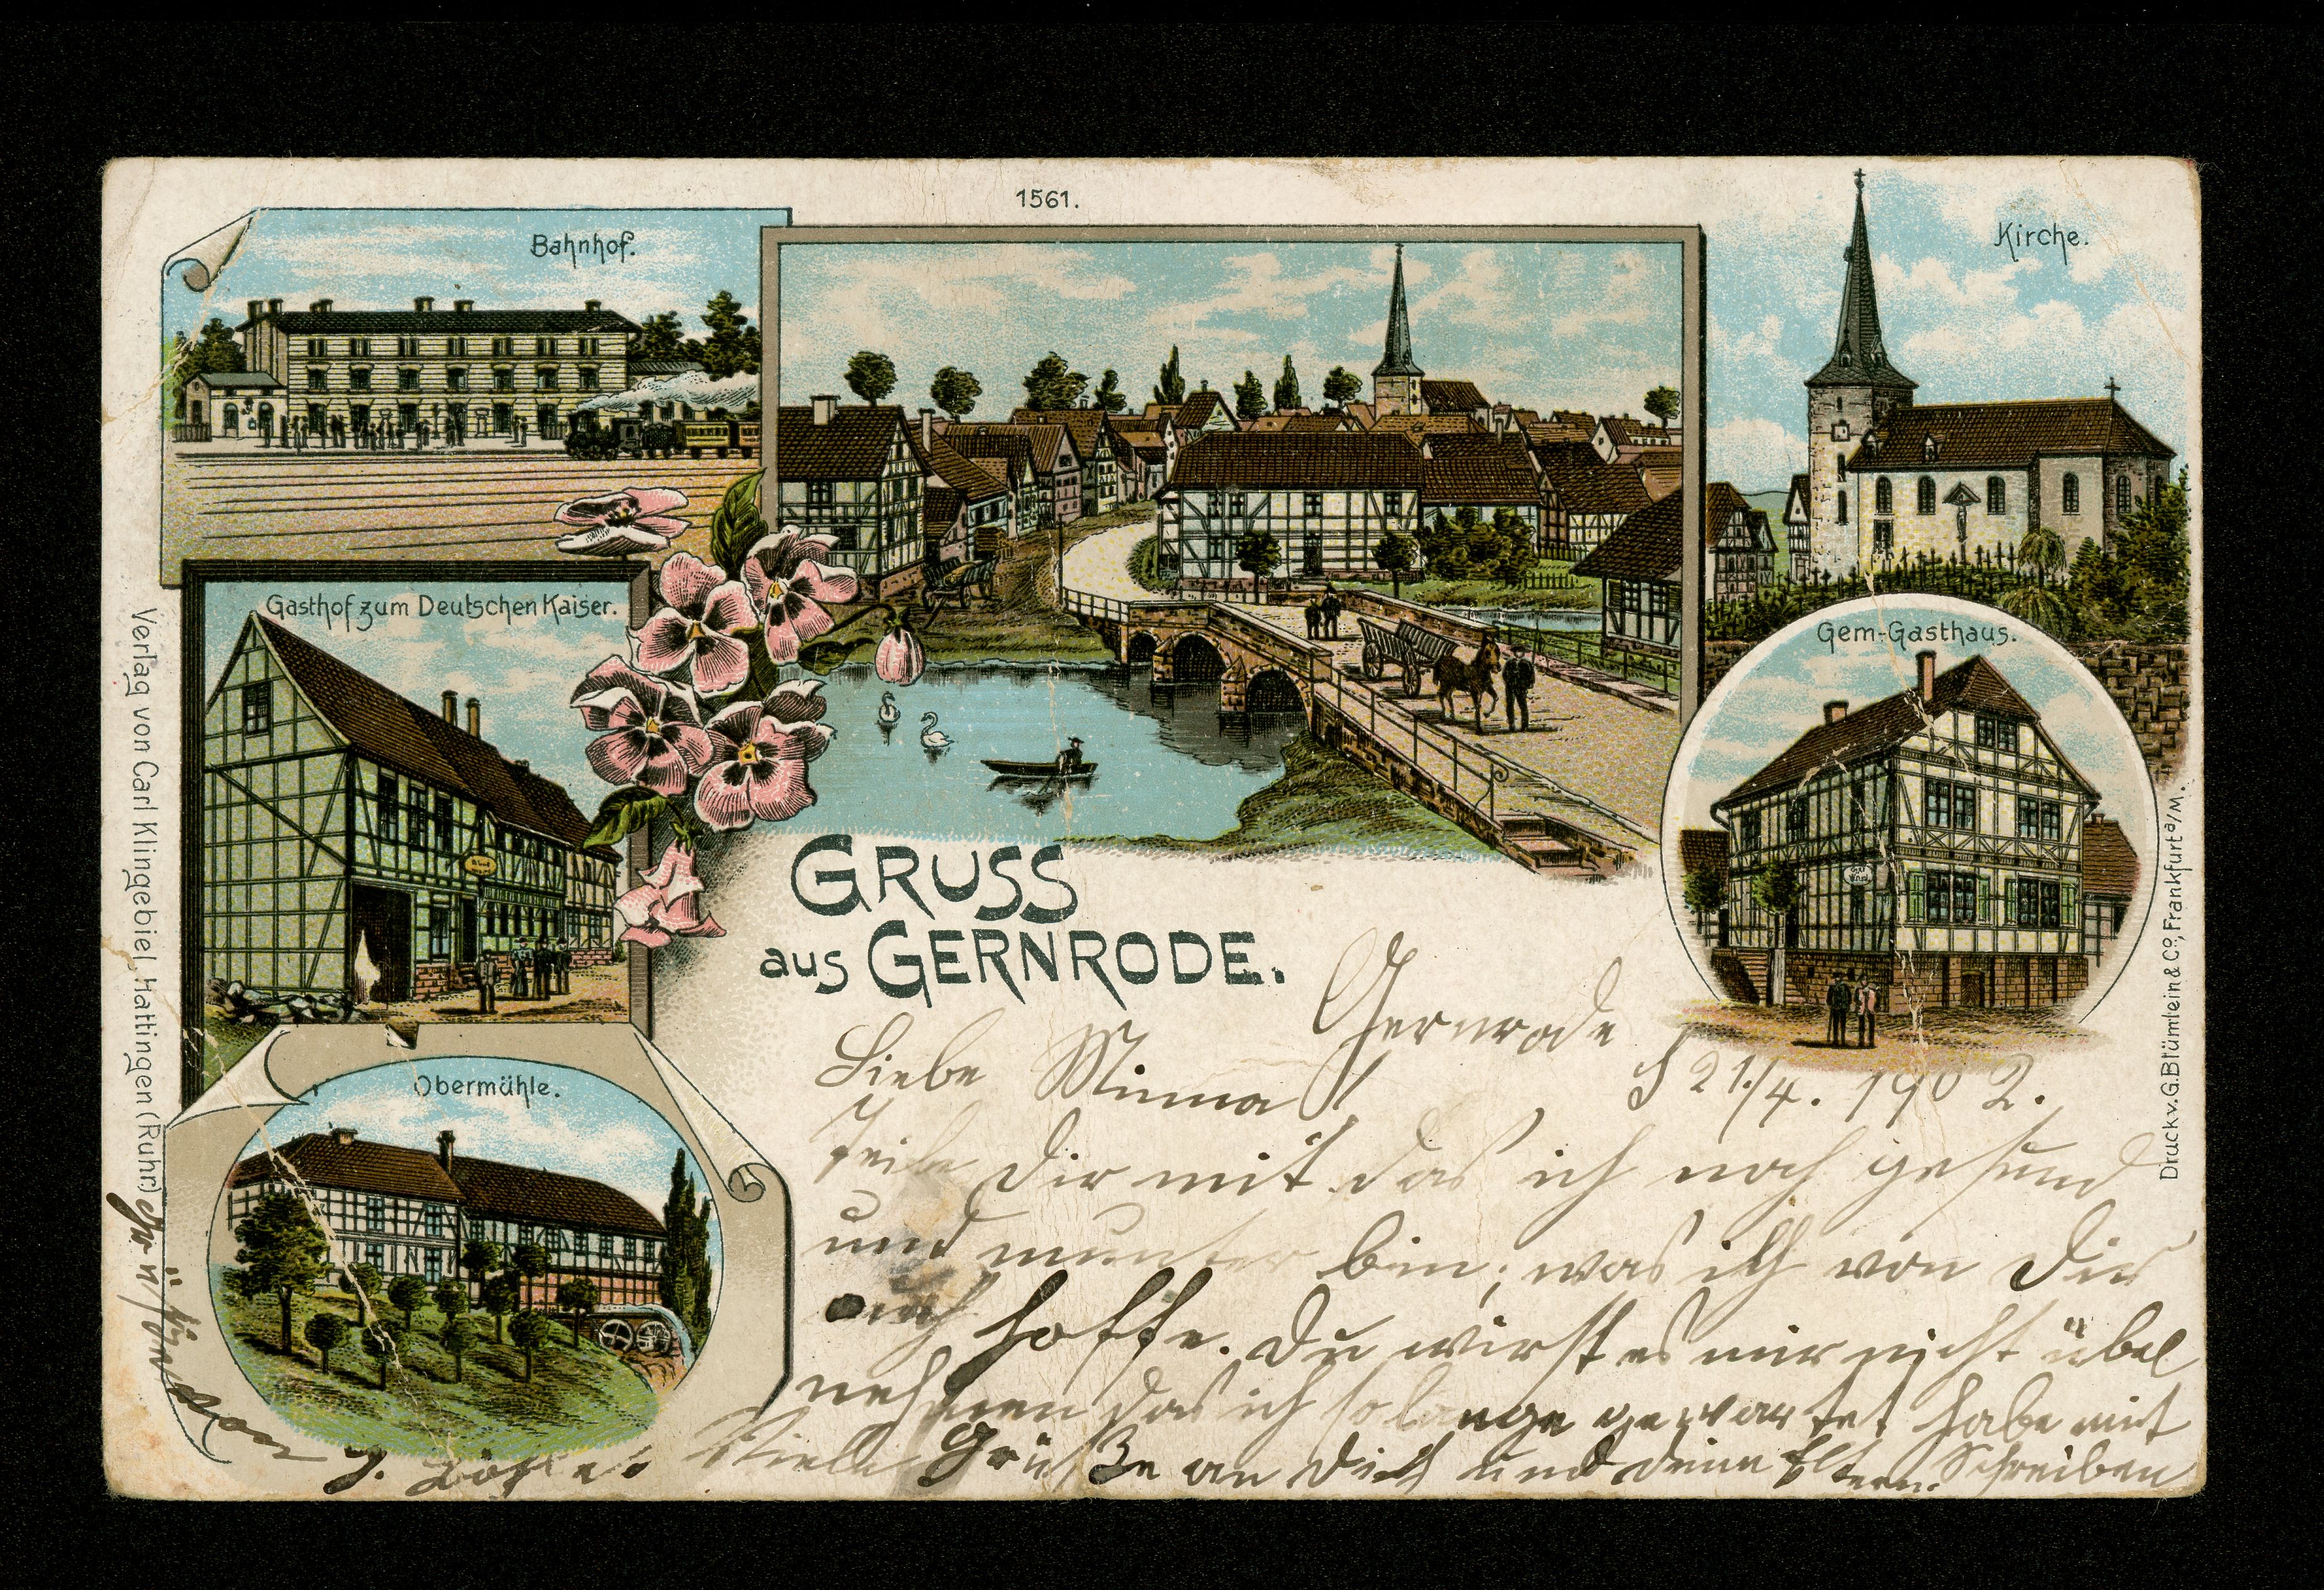 1561.
Bahnhof.
Kirche.
Gasthof zum Deutschen Kaiser.
Gem-Gasthaus.
Obermühle.
GRUSS
aus GERNRODE.
Verlag von Carl Klingebiel, Hattingen (Ruhr.)
Druck v. G. Blümlein & Co., Frankfurt a/M.
Gernrode
d 21./4. 1902.
Liebe Minna
Teile Dir mit das ich noch gesund
und munter bin; was ich von Dir
auch hoffe. Du wirst es mir nicht übel
nehmen das ich so lange gewartet habe mit
Schreiben
Viele Grüße an Dich und deine Eltern.